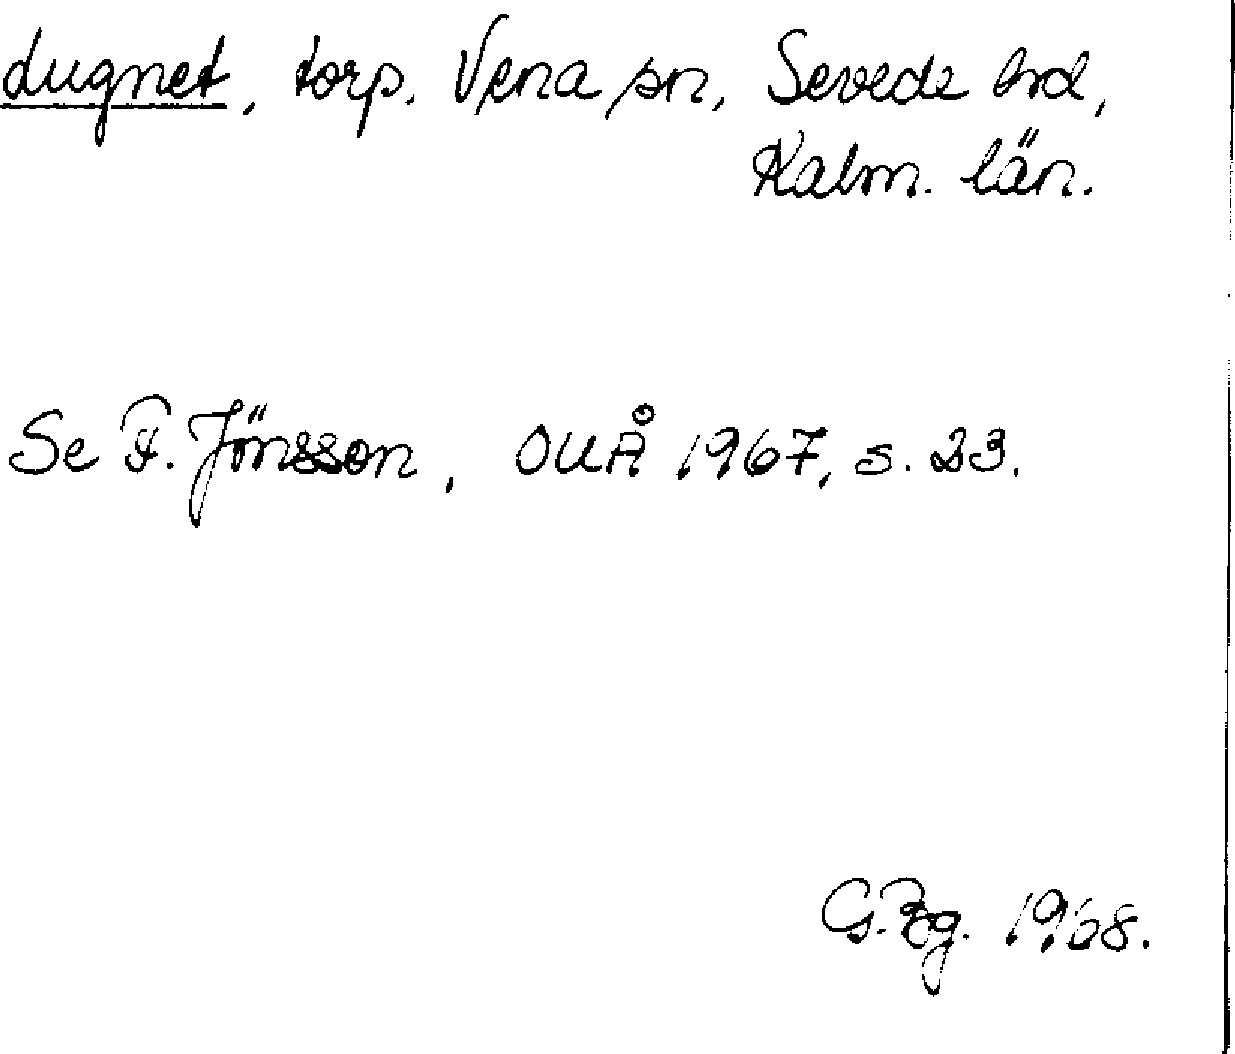 Lugnet, torp. Vena sn, Sevede hd,
Kalm. län.
Se F. Jönsson, OUÅ 1967, s. 23.
G. Bg. 1968.